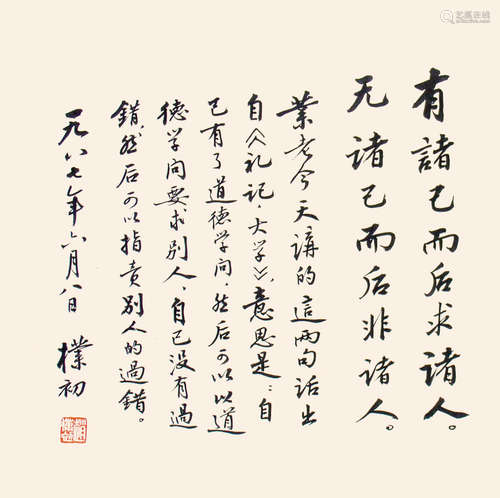 有諸己而后求諸人。
无诸己而后非诸人。
業老今天講的這两句话出
自《礼记·大学》，意思是：自
己有了道德学问，然后可以以道
德学问要求别人，自己没有過
错，然后可以指责别人的過错。
一九八七年六月八日
樸初
艺狐在线